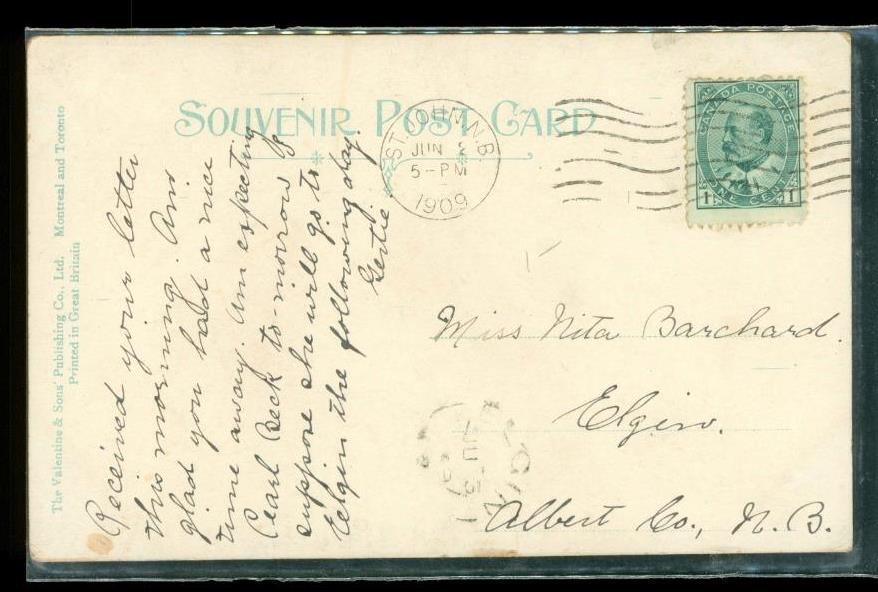 SOUVENIR POST CARD
The Valentine & Sons' Publishing Co., Ltd. Montreal and Toronto
Printed in Great Britain
ST. JOHN. N.B.
JUN 2
5-PM
1909
CANADA POSTAGE
1 ONE CENT 1
Received your letter
this morning. Am
glad you had a nice
time away. Am expecting
Pearl Beck to-morrow &
suppose she will go to
Eelgin the following day.
Gertie
Miss Nita Barchard.
Elgin.
Albert Co., N.B.